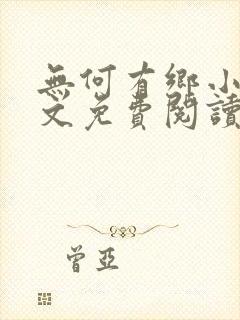 無何有鄉小
文免費閱讀
曾亞